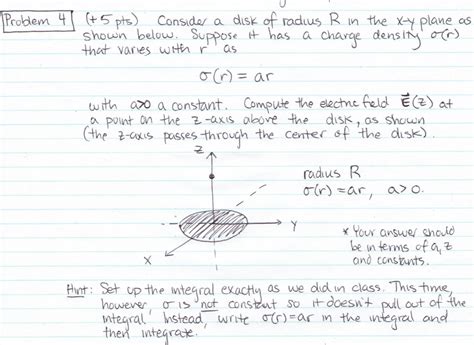 Problem 4 (+5 pts) Consider a disk of radius R in the x-y plane as
shown below. Suppose it has a charge density σ(r)
that varies with r as
σ(r) = ar
with a>0 a constant. Compute the electric field E⃗(z) at
a point on the z-axis above the disk, as shown
(the z-axis passes through the center of the disk).
z
radius R
σ(r) = ar, a>0.
Y
X
* Your answer should
be in terms of a, z
and constants.
Hint: Set up the integral exactly as we did in class. This time,
however, σ is not constant so it doesn't pull out of the
integral. Instead, write σ(r)=ar in the integral and
then integrate.